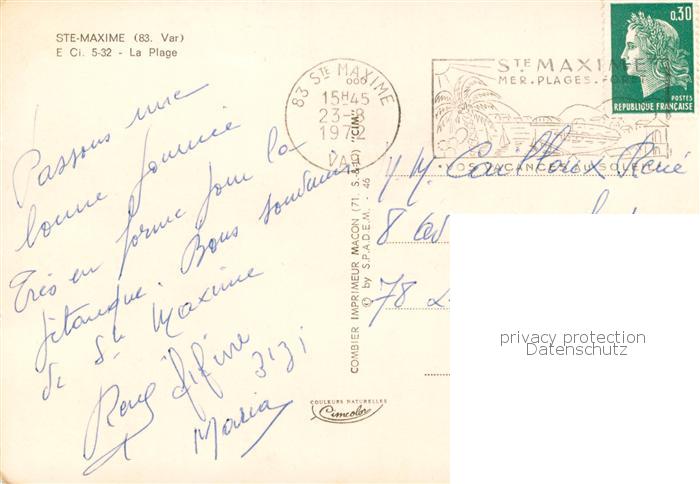 STE-MAXIME (83. Var)
E Ci. 5-32 - La Plage
Passons une
bonne journée
Très en forme pour la
pétanque. Bons souvenirs
de Ste Maxime
Fifine
Zizi
Maria
COMBIER IMPRIMEUR MACON (71. S.&L.) "CIM"
© by S.P.A.D.E.M. - 46
COULEURS NATURELLES
Cimcolor
83 STE MAXIME
15H45
23-8
1972
VAR
STE MAXIME
MER. PLAGES. FORET
VOS VACANCES AU SOLEIL
0,30
POSTES
REPUBLIQUE FRANÇAISE
M. René
8
78
privacy protection
Datenschutz